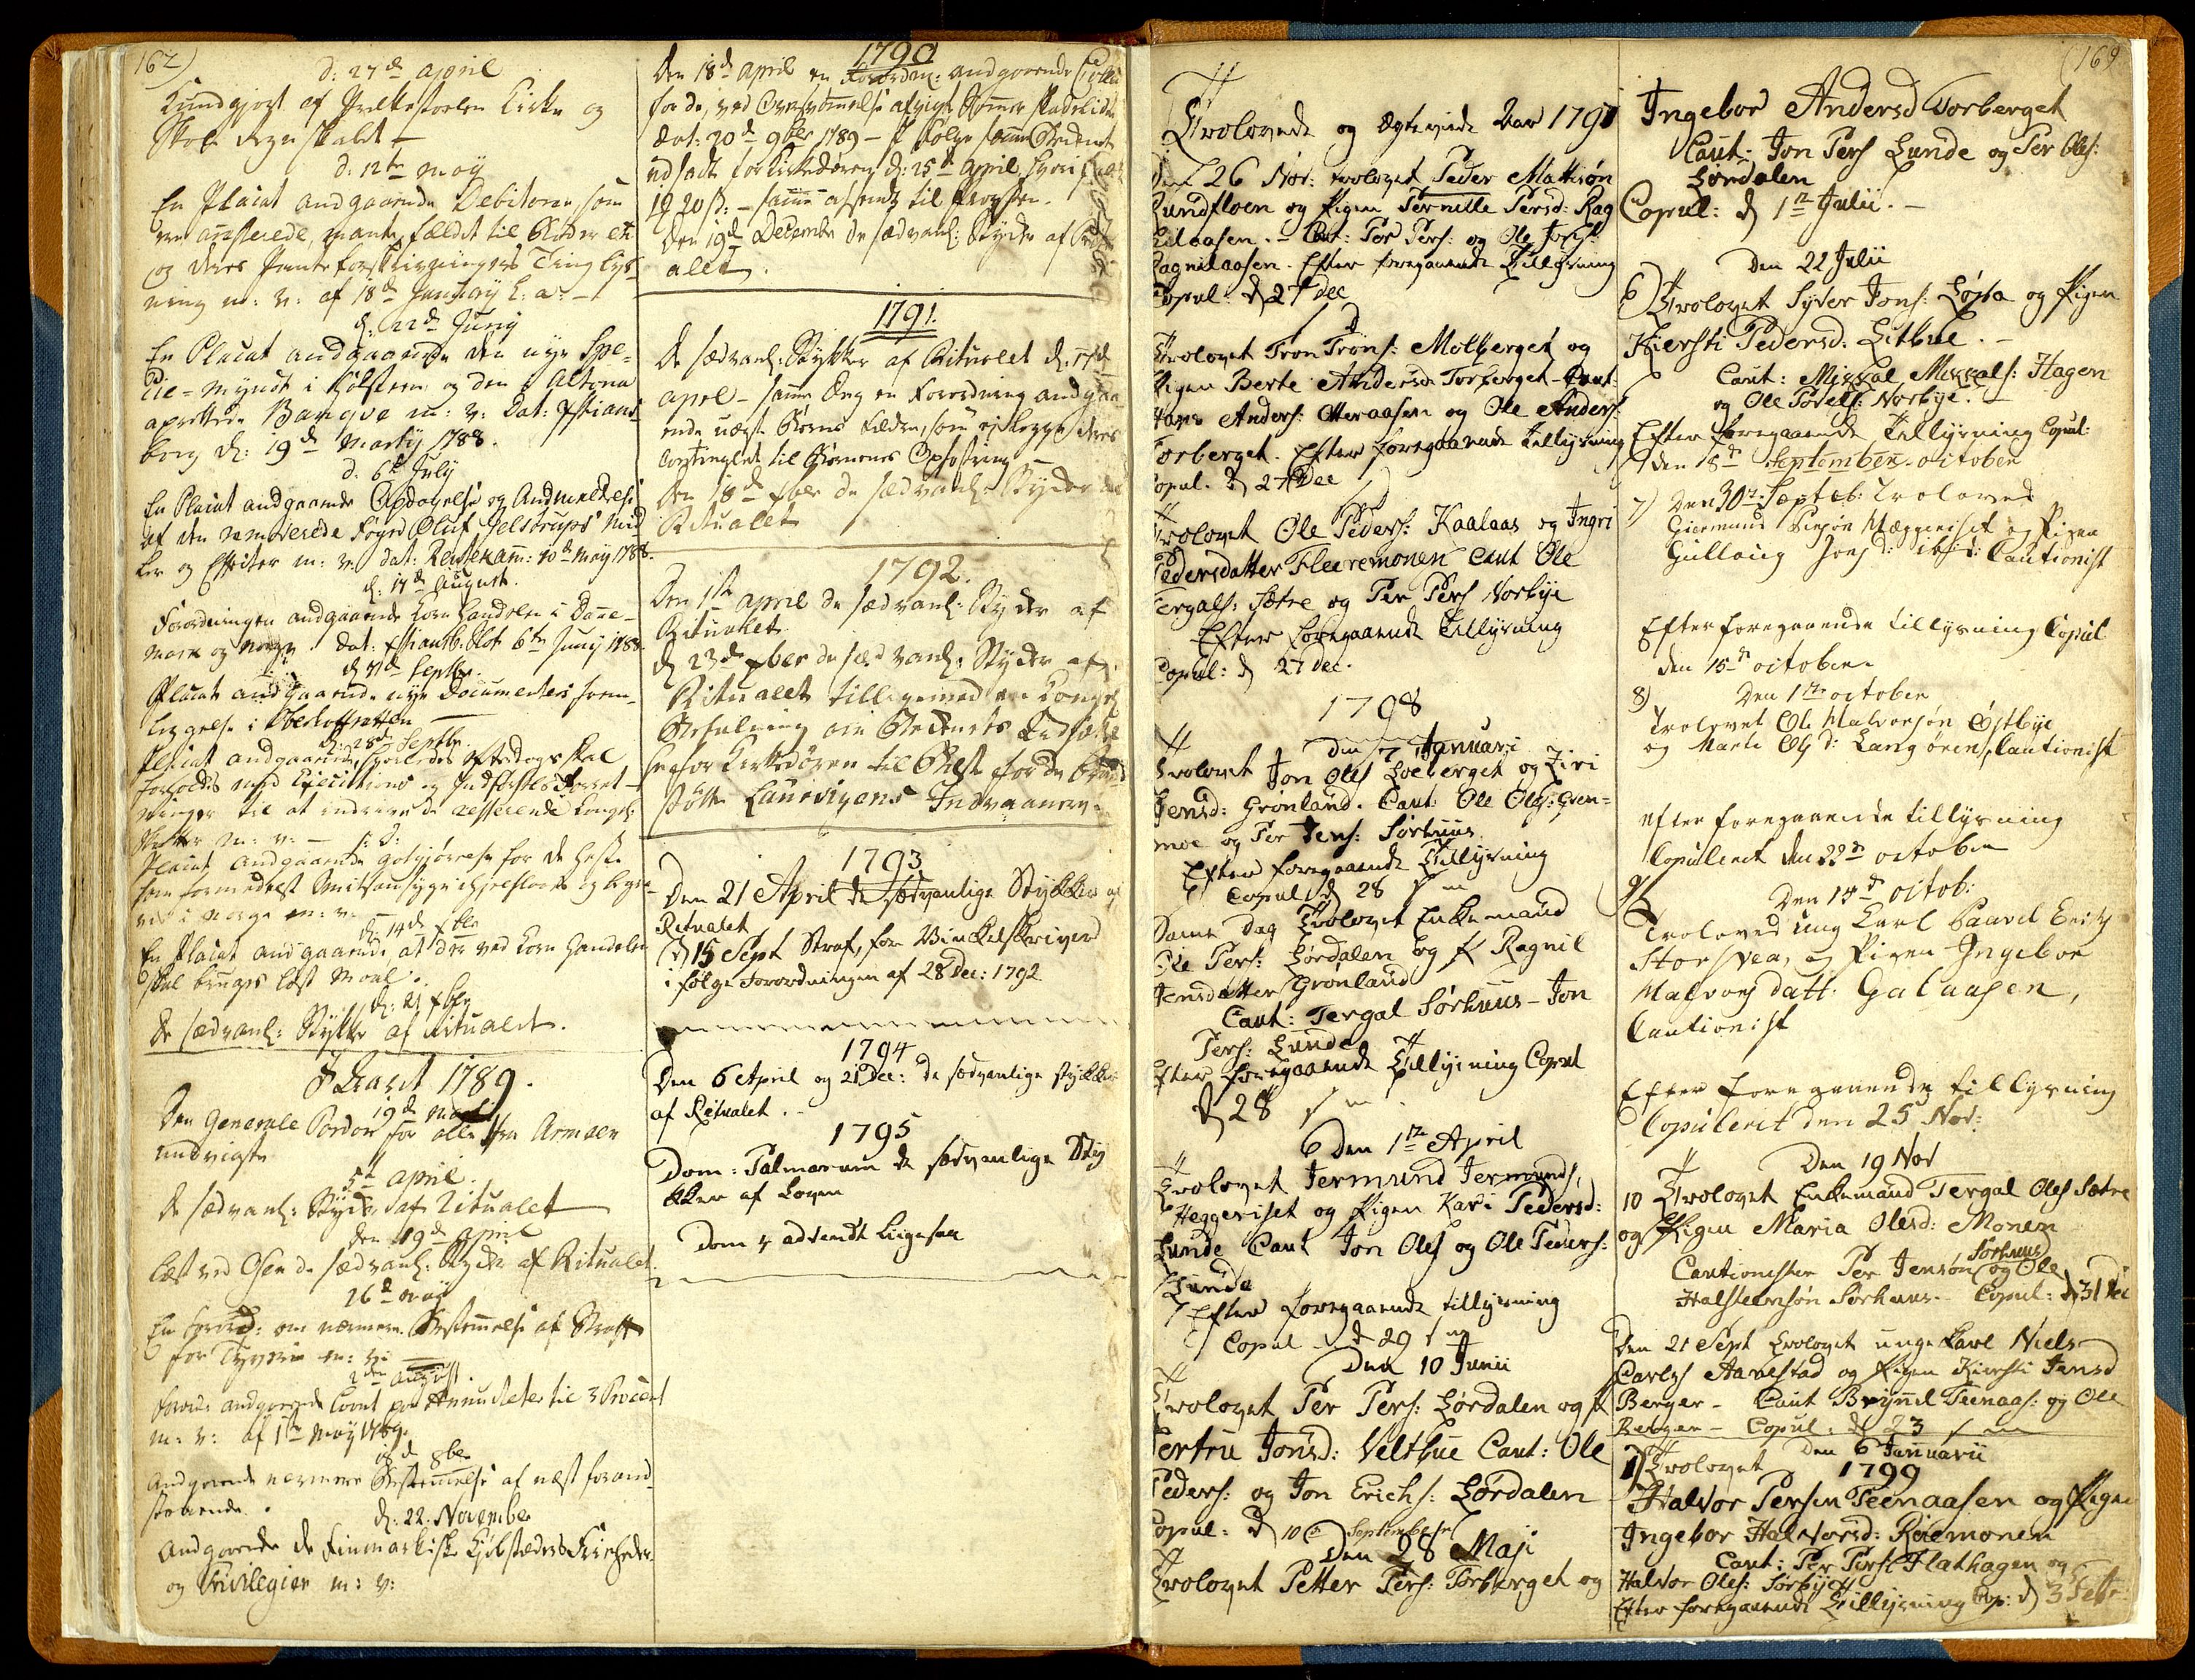 162)
d: 27de april
Kundgjort af Prækestoelen Kirke og
Skole Regnskabet —
d. 12te maÿ
En Placat andgaaende Debitorer som
og deres Pante forskrivningers Ting lys-
ning m: v: af 18de January h: a: —
d: 22de Juny
En Placat andgaaende den nye Spe-
cie-Myndt i Holsteen og den i Altona
oprettede Banqve m: v: Dat:
borg d: 19de Marty 1788.
d. 6te July
En Placat andgaaende Opdagelse og Andmeldelse
af den rømte Foged Oluf Gelstrups Mid
ler og Effecter m: v. dat: Rentekam̄: 10de Maÿ 1788.
d. 17de August.
Forordningen andgaaende Korn Handelen i Dane-
mark og Norge. Dat: Slot 6te Juny 1788
Septbr.
Placat andgaaende nye Documenters frem-
læggelse i Oberhoffretten —
d: 28de Septbr.
Placat andgaaende, hvorledes efterdags skal
forholdes med Executions og Indførsels Forret-
ninger til at inddrive de resterende Kongel:
Skatter m: v: —
Placat andgaaende Godtgjørelse for de Heste
som formedelst Smitsom syge ihjelslaaes og begra-
ves i Norge m: v.
d: 14de
En Placat andgaaende, at der ved Korn Handelen
skal bruges løst Maal.
d: 21
De sædvanl: Stykker af Ritualet.
Aaret 1789.
19de Martj
Den Generale Pardon for alle fra Armeen
undvigte
5te april.
De sædvanl: Stycker af Ritualet
den 19de april
læst ved Osen de sædvanl: Stycker af Ritualet.
26de maÿ
En Forord: om nærmere Bestem̄else af Straff
for Tyverie m: v: —
2den August.
Forord: andgaaende Laant paa Annuiteter til 3 Procent
m: v: af 1te Maÿ 1789.
18de 8br
Andgaaende nærmere Bestem̄else af næst forand
staaende.
d: 22. November
Andgaaende de Finmarkiske Kjøbstæders Friheder
og Privilegier m: v:
1790
Den 18de april en Forordn: andgaaende
for de, ved Oversvøm̄else afvigte Som̄er skadelidte
Dat: 20de 9ber 1789 — J følge sam̄e Bekkenet
udsadt for Kirkedøren d: 25de april,
19 20ß: — sam̄e afsendt til Provsten.
Den 19de December de sædvanl: Stycker af Ritu
alet.
1791.
De sædvanl: Stykker af Ritualet d: 17de
apriil — sam̄e Dag en Forordning andgaa
ende uægte Børns Fædre, som ej lægge deres
Contingent til Børnenes Opfostring —
Den 18de de sædvanl: Stycker af
Ritualet
1792.
Den 1te april de sædvanl: Stycker af
Ritualet
d 23de de sædvanl: Stycker af
Ritualet tilligemed en Kongel:
Befalning om Beckenets Udsættelse
for Kirkedøren til Best for de
Laurvigens Indvaanere.
1793
Den 21 April de sædvanlige Stykker af
Ritualet
d 15 Sept Straf, for Vinckelskriver
i følge Forordningen af 28 Dec: 1792
1794
Den 6 April og 21 Dec: de sædvanlige stykker
af Ritualet. —
1795
Dom: Palmarum de sædvanlige Sty
kker af Loven
Dom 4 advendt Liigesaa
(169
Trolovede og Ægteviede Aar 1797
Den 26 Nov: trolovet Peder Mattisøn
Lundfloen og Pigen Pernille Persd: Rag
Lilaasen. — Caut: Per Pers: og Ole
Ragnilaasen. Efter foregaaende Tillysning
Copul: d 27 Dec
Trolovet Tron Trons: Molberget og
Pigen Berte Andersd: Torberget — Caut:
Hans Anders: Otteraasen og Ole Anders:
Torberget. Efter foregaaende Tillysning
Copul. d 27 Dec
Trolovet Ole Peders: Kaalaas og Ingri
Pedersdatter Fleeremonen Caut Ole
Tergals: Sætre og Per Pers Norbye
Efter foregaaende Tillysning
Copul: d 27 Dec.
1798
Den 7 Januari
Trolovet Jon Oles Loeberget og Ziri
Jensd: Grønland. Caut: Ole Oles: Gren-
moe og Per Jens: Sørhuus
Efter foregaaende Tillysning
Copul d 28 s m
Samme Dag Trolovet Enkemand
Ole Pers: Lørdalen og P Ragnil
Jensdatter Grønland
Caut: Tergal Sørhuus — Jon
Pers: Lunde
Efter foregaaende Tillysning Copul
d 28 s m.
Den 1te April
Trolovet Jermund Jermunds.
Heggeriset og Pigen Kari Pedersd:
Lunde Caut Jon Oles og Ole Peders:
Lunde
Efter foregaaende tillysning
Copul d 29 s m
Den 10 Junii
Trolovet Per Pers: Lørdalen og P
Pertru Jonsd: Veltbue Caut: Ole
Peders: og Jon Erichs: Lørdalen
Copul: d 10de September
Den 28 Maji
Trolovet Petter Pers: Torberget og
Ingebor Andersd Torberget
Caut: Jon Pers Lunde og Per Oles:
Lørdalen
Copul: d 1te Julii. —
Den 22 Julii
6) Trolovet Syver Jons: Løsta og Pigen
Kiersti Pedersd: Litbue. —
Caut: Mikkal Mikkals: Hagen
og Ole Povels: Norbye.
Efter foregaaende Tillysning Copul:
den 18de September. october
7) Den 30te Septeb: Troloved
Giermund Heggeriset og Pigen
Gullaug Cautionist
Efter foregaaende tillysning Copul
den 15de october
8) Den 1te october
Trolovet Ole Halvorsøn Østbye
og Marte Ols d: Langøren, Cautionist
efter foregaaende tillysning
Copuleret den 22de october
9 Den 14de octob:
Troloved ung Karl Paavel
Storsvea, og Pigen Ingebor
Halvors datt. Galaasen,
Cautionist
Efter foregaaende tillysning
Copulerit den 25 Nov:
Den 19 Nov
10 Trolovet Enkemand Tergal Oles Sætre
og Pigen Maria Olesd: Monen
Cautionister Per Jensøn Sørhuus og Ole
Halsteensøn Sørhuus. — Copul: d 31 Dec
Den 21 Sept Trolovet unge Karl Niels
Carls Aanestad og Pigen Kiersti Jensd
Berger — Caut Brynil Teenaas: og Ole
Berger — Copul: d 23 s m
Den 6 Januarii
1) Trolovet 1799
Halvor Persen Teenaasen og Pigen
Ingebor Halvorsd: Roiemonen
Caut: Per Pers: Flathagen og
Halvor Oles: Sørbye
Efter foregaaende Tillysning Cop: d 3 Febr: